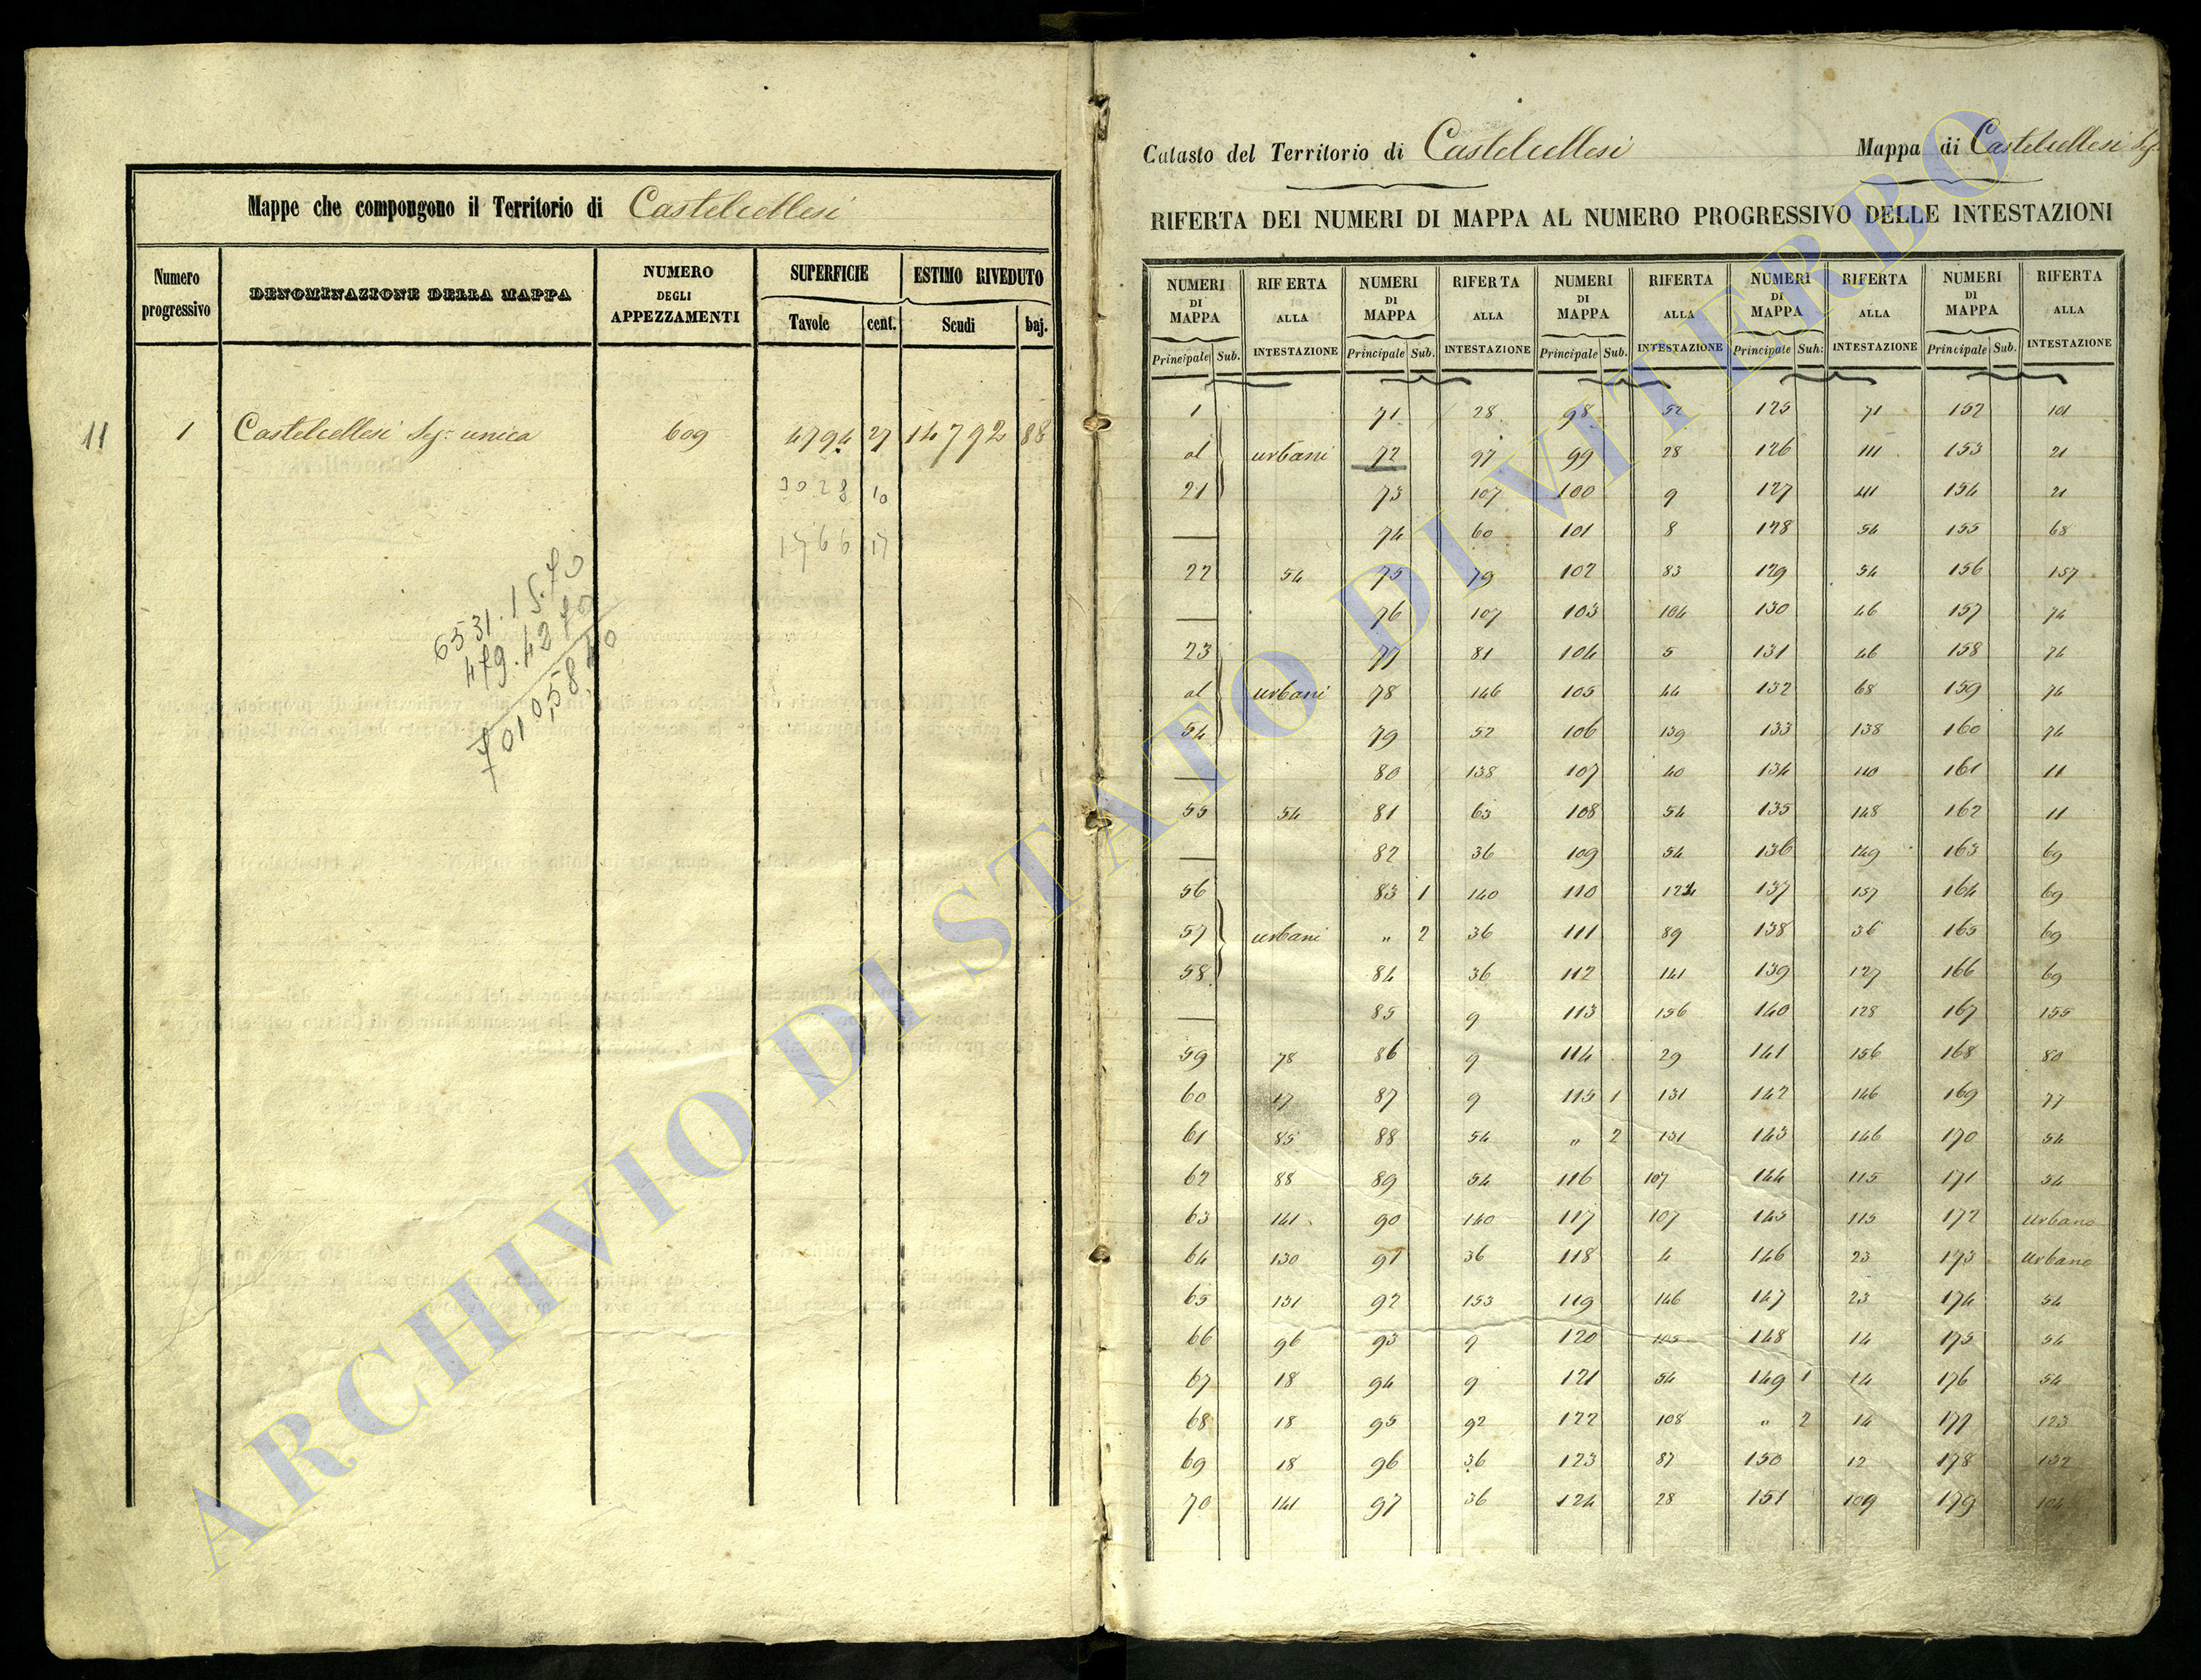 Mappe che compongono il Territorio di Castelcellesi
Numero progressivo
DENOMINAZIONE DELLA MAPPA
NUMERO DEGLI APPEZZAMENTI
SUPERFICIE
ESTIMO RIVEDUTO
Tavole cent. Scudi baj.
11 1 Castelcellesi Sez. unica 609 4794 27 14792 88
3028 10
1766 17
6531.15.70
479.4270
7010,58,40
Catasto del Territorio di Castelcellesi Mappa di Castelcellesi
RIFERTA DEI NUMERI DI MAPPA AL NUMERO PROGRESSIVO DELLE INTESTAZIONI
NUMERI DI MAPPA RIFERTA ALLA INTESTAZIONE NUMERI DI MAPPA RIFERTA ALLA INTESTAZIONE NUMERI DI MAPPA RIFERTA ALLA INTESTAZIONE NUMERI DI MAPPA RIFERTA ALLA INTESTAZIONE NUMERI DI MAPPA RIFERTA ALLA INTESTAZIONE
Principale Sub. Principale Sub. Principale Sub. Principale Sub. Principale Sub.
1 71 28 98 52 125 71 152 101
al urbani 72 97 99 28 126 111 153 21
21 73 107 100 9 127 111 154 21
— 74 60 101 8 128 54 155 68
22 54 75 79 102 83 129 54 156 157
— 76 107 103 104 130 46 157 74
23 77 81 104 5 131 46 158 74
al urbani 78 146 105 44 132 68 159 74
54 79 52 106 139 133 138 160 74
— 80 138 107 40 134 110 161 11
55 54 81 63 108 54 135 148 162 11
— 82 36 109 54 136 149 163 69
56 83 1 140 110 124 137 157 164 69
57 urbani " 2 36 111 89 138 36 165 69
58 84 36 112 141 139 127 166 69
— 85 9 113 156 140 128 167 155
59 78 86 9 114 29 141 156 168 80
60 17 87 9 115 1 131 142 146 169 77
61 85 88 54 " 2 131 143 146 170 54
62 88 89 54 116 107 144 115 171 54
63 141 90 140 117 107 145 115 172 urbano
64 130 91 36 118 4 146 23 173 urbano
65 131 92 153 119 146 147 23 174 54
66 96 93 9 120 105 148 14 175 54
67 18 94 9 121 54 149 1 14 176 54
68 18 95 92 122 108 " 2 14 177 123
69 18 96 36 123 87 150 12 178 132
70 141 97 36 124 28 151 109 179 104
ARCHIVIO DI STATO DI VITERBO